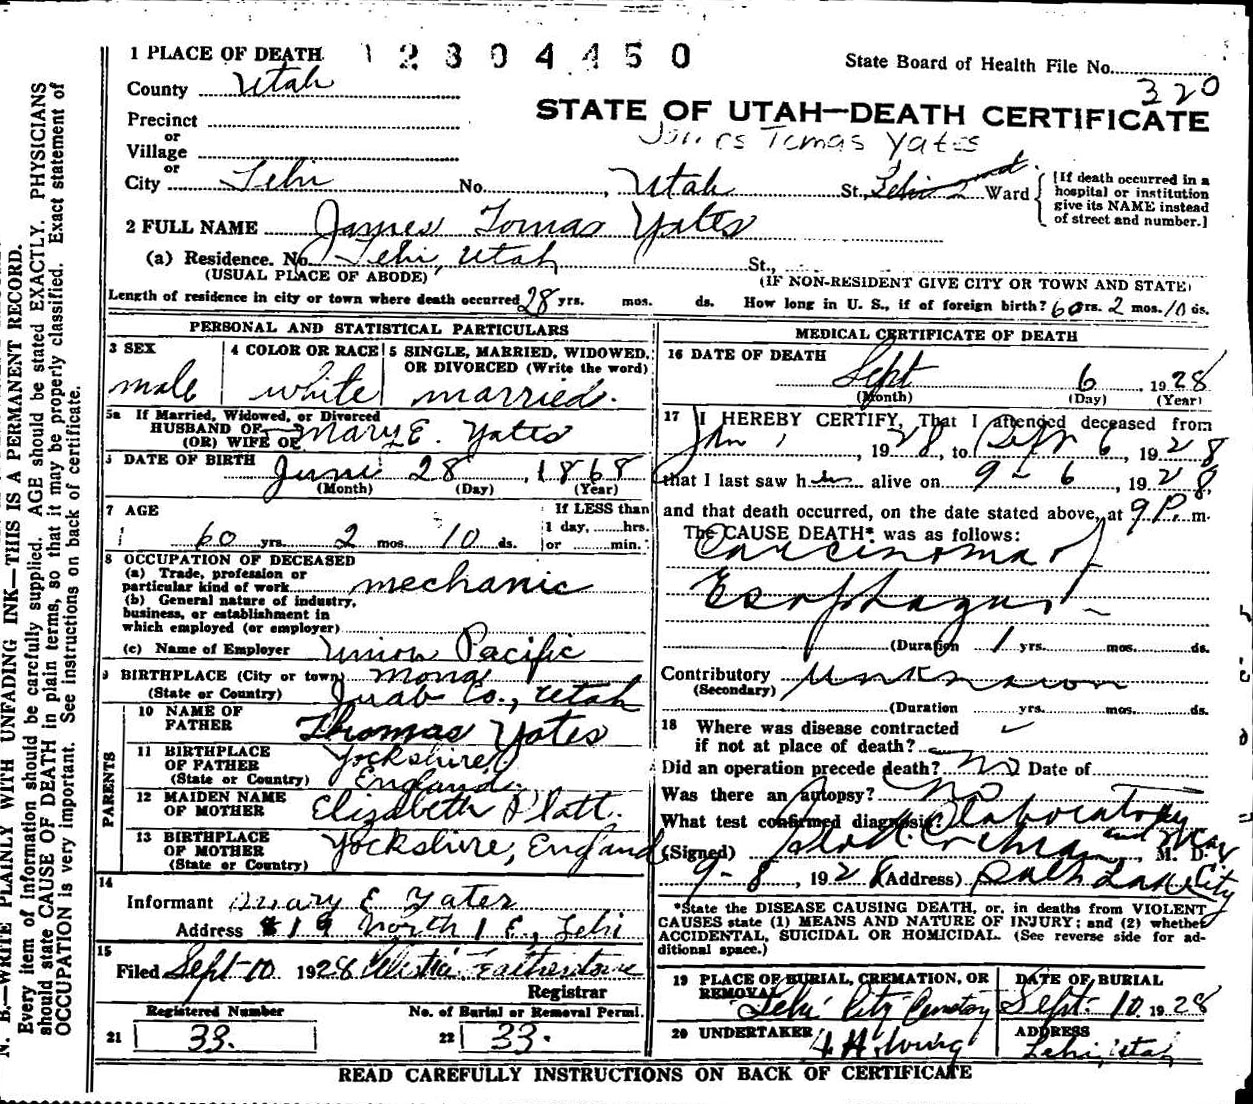 1 PLACE OF DEATH 12304450
State Board of Health File No. 320
County Utah
STATE OF UTAH—DEATH CERTIFICATE
Precinct
Tomas Yates
or
Village
or
City Lehi No. , Utah St., Lehi 2 Ward
[If death occurred in a
hospital or institution
give its NAME instead
of street and number.]
2 FULL NAME James Tomas Yates
(a) Residence. No. Lehi, Utah St.,
(USUAL PLACE OF ABODE) (IF NON-RESIDENT GIVE CITY OR TOWN AND STATE)
Length of residence in city or town where death occurred 28 yrs. mos. ds. How long in U. S., if of foreign birth? 60 yrs. 2 mos. 10 ds.
PERSONAL AND STATISTICAL PARTICULARS
3 SEX
male
4 COLOR OR RACE
white
5 SINGLE, MARRIED, WIDOWED,
OR DIVORCED (Write the word)
married.
5a If Married, Widowed, or Divorced
HUSBAND OF
(OR) WIFE OF Mary E. Yates
DATE OF BIRTH
June 28, 1868
(Month) (Day) (Year)
7 AGE If LESS than
1 day, hrs.
60 yrs. 2 mos. 10 ds. or min.
8 OCCUPATION OF DECEASED
(a) Trade, profession or
particular kind of work mechanic
(b) General nature of industry,
business, or establishment in
which employed (or employer)
(c) Name of Employer Union Pacific
9 BIRTHPLACE (City or town) Mona
(State or Country) Juab Co., Utah
PARENTS
10 NAME OF
FATHER Thomas Yates
11 BIRTHPLACE
OF FATHER Yorkshire
(State or Country) England.
12 MAIDEN NAME
OF MOTHER Elizabeth Platt.
13 BIRTHPLACE
OF MOTHER Yorkshire, England
(State or Country)
14
Informant Mary E Yates
Address #19 North 1 E., Lehi
15
Filed Sept 10 1928
Registrar
Registered Number No. of Burial or Removal Permi.
21 33. 22 33.
MEDICAL CERTIFICATE OF DEATH
16 DATE OF DEATH
Sept 6, 1928
(Month) (Day) (Year)
17 I HEREBY CERTIFY, That I attended deceased from
Jan, 1928, to Sept 6, 1928
that I last saw him alive on 9-6, 1928,
and that death occurred, on the date stated above, at 9 P. m.
The CAUSE DEATH* was as follows:
Carcinoma of
Esophagus
(Duration 1 yrs. mos. ds.
Contributory
(Secondary) unknown
(Duration yrs. mos. ds.
18 Where was disease contracted
if not at place of death?
Did an operation precede death? no Date of
Was there an autopsy? no
What test confirmed diagnosis? Laboratory
and
(Signed) M. D.
9-8, 1928 (Address) Salt Lake City
*State the DISEASE CAUSING DEATH, or, in deaths from VIOLENT
CAUSES state (1) MEANS AND NATURE OF INJURY; and (2) whether
ACCIDENTAL, SUICIDAL OR HOMICIDAL. (See reverse side for ad-
ditional space.)
19 PLACE OF BURIAL, CREMATION, OR
REMOVAL
Lehi City Cemetery
DATE OF BURIAL
Sept. 10, 1928
20 UNDERTAKER
ADDRESS
Lehi, Utah
READ CAREFULLY INSTRUCTIONS ON BACK OF CERTIFICATE
N. B.—WRITE PLAINLY WITH UNFADING INK—THIS IS A PERMANENT RECORD.
Every item of information should be carefully supplied. AGE should be stated EXACTLY. PHYSICIANS
should state CAUSE OF DEATH in plain terms, so that it may be properly classified. Exact statement of
OCCUPATION is very important. See instructions on back of certificate.